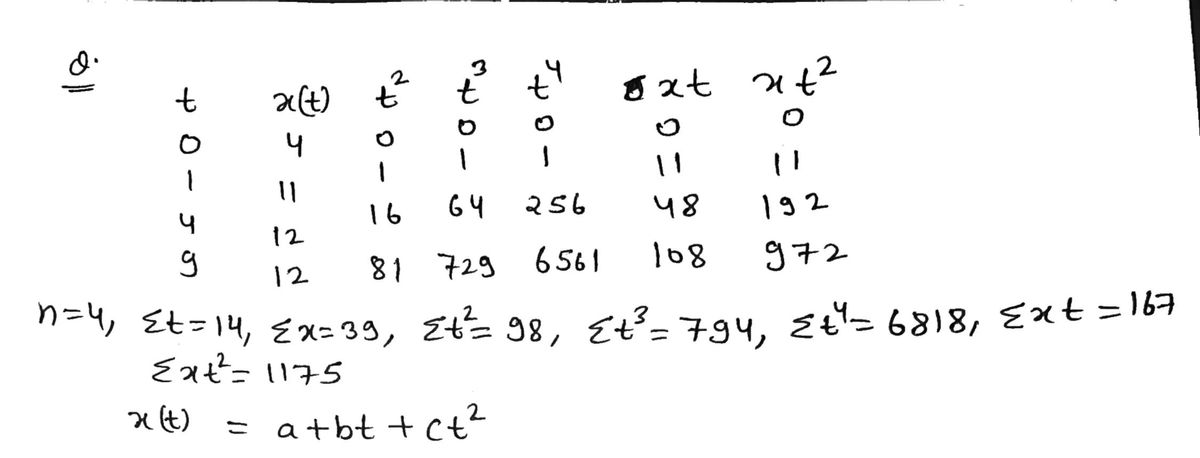 Q.
t x(t) t² t³ t⁴ xt xt²
0 4 0 0 0 0 0
1 11 1 1 1 11 11
4 12 16 64 256 48 192
9 12 81 729 6561 108 972
n=4, Σt=14, Σx=39, Σt²=98, Σt³=794, Σt⁴=6818, Σxt=167
Σxt²=1175
x(t) = a+bt+ct²